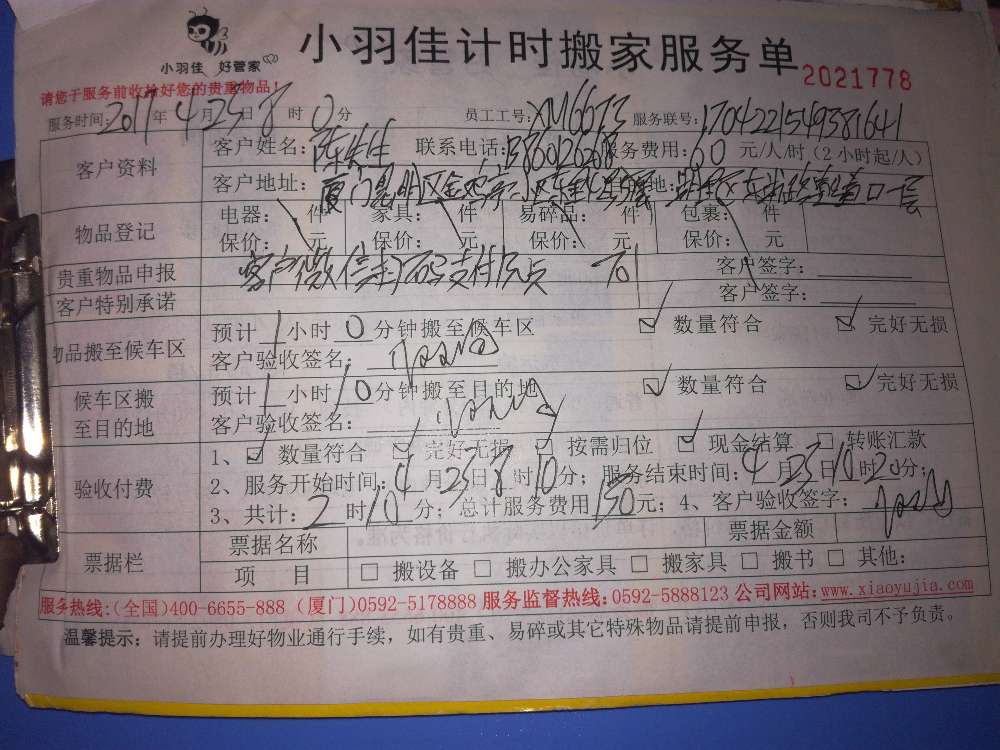 小羽佳 好管家
小羽佳计时搬家服务单
2021778
请您于服务前收捡好您的贵重物品!
服务时间:2017年4月23日8时0分 员工工号:XM6673 服务联号:1704221549381641
客户资料
客户姓名:陈先生 联系电话: 服务费用:60元/人/时(2小时起/人)
客户地址:厦门思明区
物品登记
电器: 件 家具: 件 易碎品: 件 包裹: 件
保价: 元 保价: 元 保价: 元 保价: 元
贵重物品申报 客户签字:
客户微信 支付
客户特别承诺 客户签字:
物品搬至候车区
预计1小时0分钟搬至候车区 ☑ 数量符合 ☑ 完好无损
客户验收签名:
候车区搬至目的地
预计1小时10分钟搬至目的地 ☑ 数量符合 ☑ 完好无损
客户验收签名:
验收付费
1、☑ 数量符合 ☑ 完好无损 ☑ 按需归位 ☑ 现金结算 □ 转账汇款
2、服务开始时间:4月23日8时10分;服务结束时间:4月23日10时20分;
3、共计:2时10分;总计服务费用130元;4、客户验收签字:
票据栏
票据名称 票据金额
项 目 □ 搬设备 □ 搬办公家具 □ 搬家具 □ 搬书 □ 其他:
服务热线:(全国)400-6655-888 (厦门)0592-5178888 服务监督热线:0592-5888123 公司网站:www.xiaoyujia.com
温馨提示:请提前办理好物业通行手续,如有贵重、易碎或其它特殊物品请提前申报,否则我司不予负责。